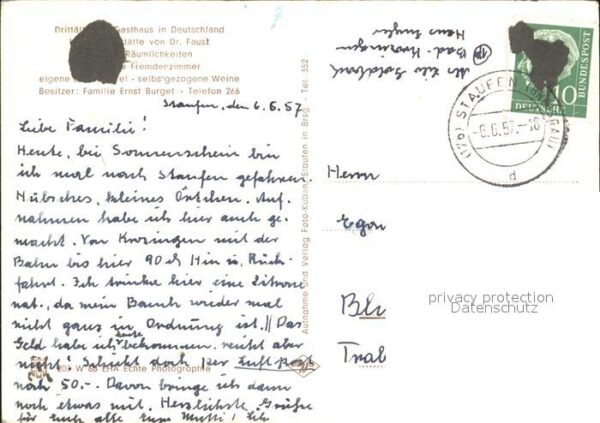 Drittält Gasthaus in Deutschland
stätte von Dr. Faust
Räumlichkeiten
e Fremdenzimmer
eigene el - selbstgezogene Weine
Besitzer: Familie Ernst Burget - Telefon 266
Staufen, den 6.6.57
Liebe Familie!
Heute, bei Sonnenschein bin
ich mal nach Staufen gefahren.
Hübsches, kleines Örtchen. Auf-
nahmen habe ich hier auch ge-
macht. Von Krozingen mit der
Bahn bis hier 90 ₰ Hin u. Rück-
fahrt. Ich trinke hier eine Zitrone
nat., da mein Bauch wieder mal
nicht ganz in Ordnung ist. || Das
Geld habe ich heute bekommen, reicht aber
nicht! Schickt doch per Luftpost
noch 50.- Davon bringe ich dann
noch etwas mit. Herzlichste Grüße
für euch alle zum Ich
203 W 68 EHA Echte Photographie
Aufnahme und Verlag Foto-Kuben, Staufen in Brsg. - Tel. 352
Bad-Krozingen
Haus
DEUTSCHE BUNDESPOST
10
(17b) STAUFEN (BREISGAU)
-6.6.57.-18
d
Herrn
Egon
Blr
Tral
privacy protection
Datenschutz